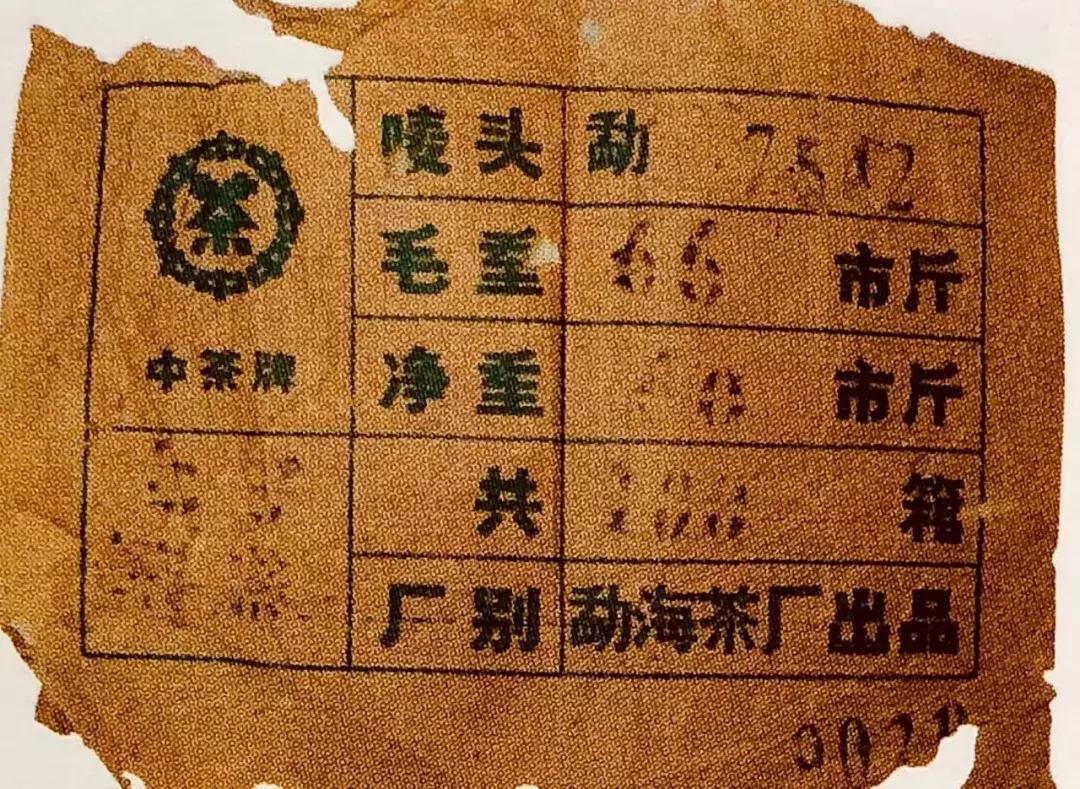 中 茶 中
中茶牌
唛头 勐 7542
毛重 66 市斤
净重 市斤
共 100 箱
厂别 勐海茶厂出品